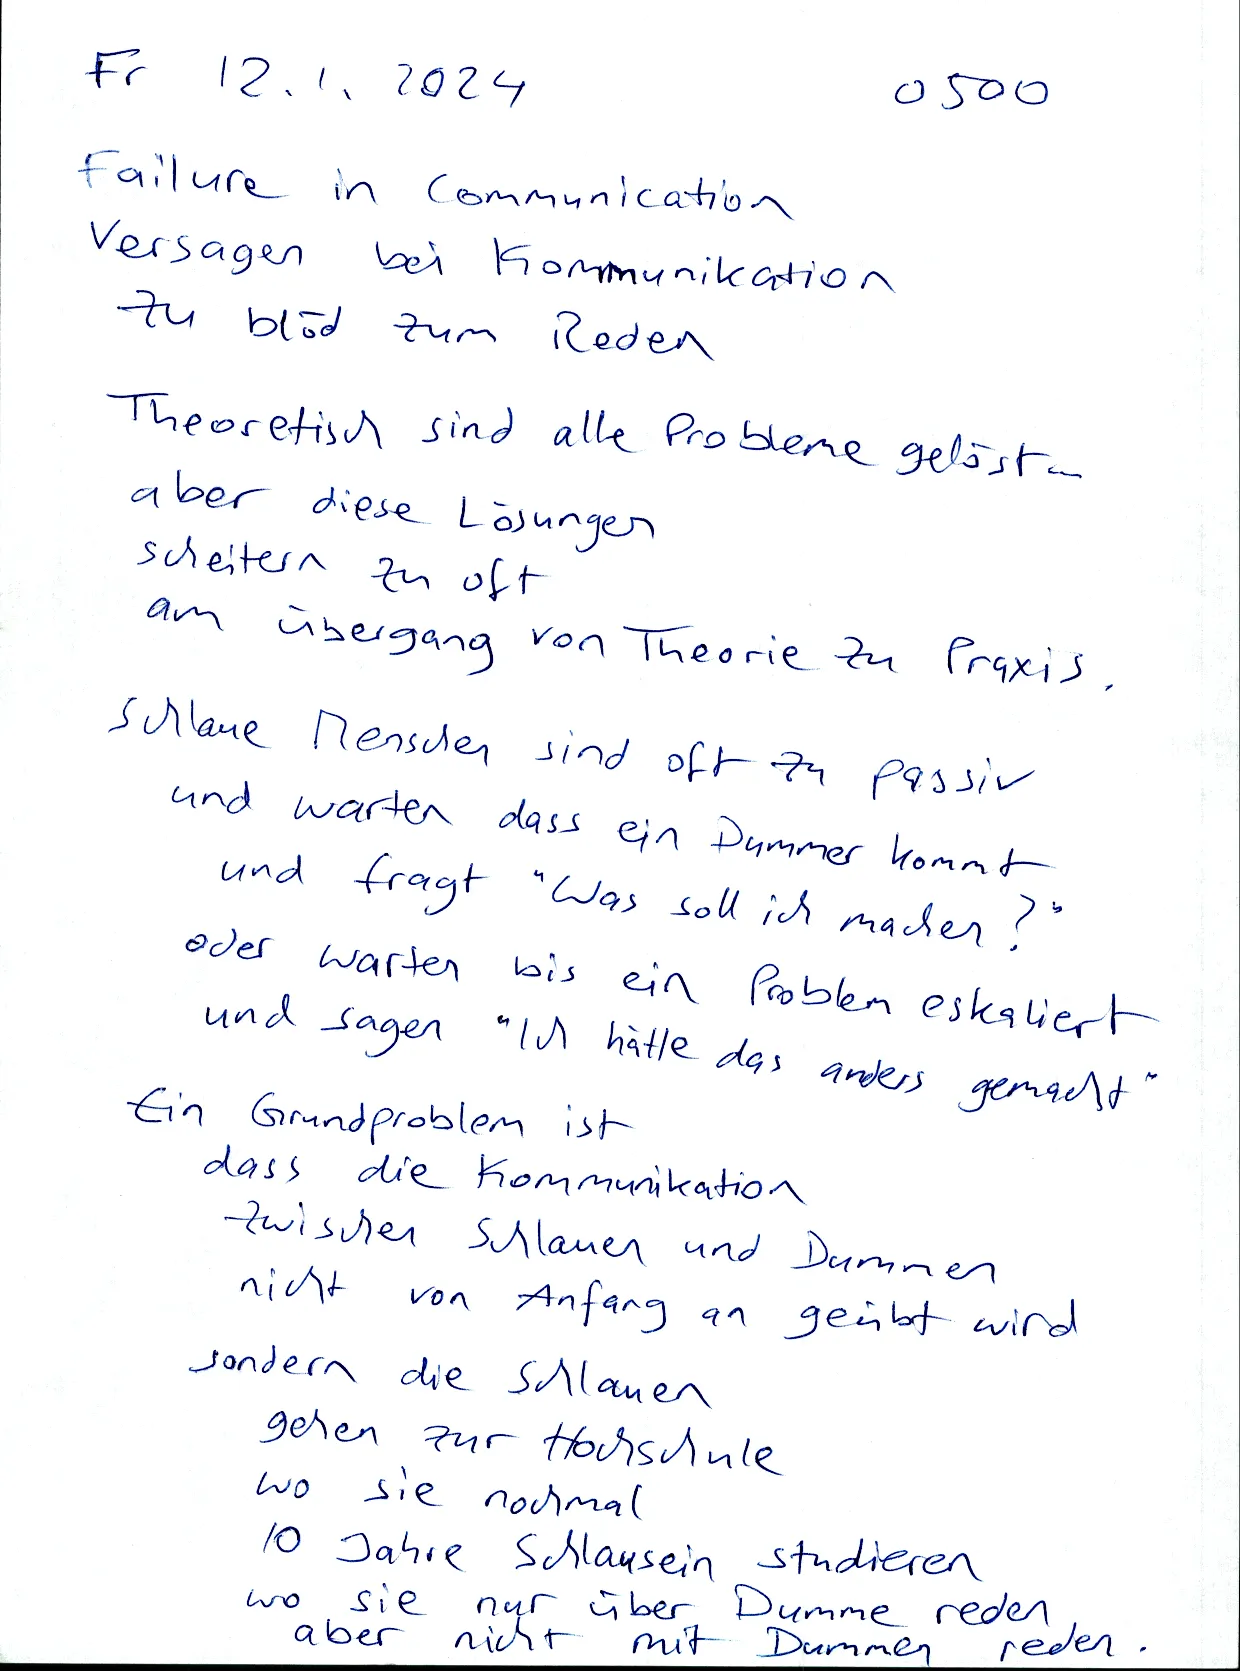 Fr 12.1.2024 0500
Failure in Communication
Versagen bei Kommunikation
zu blöd zum Reden
Theoretisch sind alle Probleme gelöst...
aber diese Lösungen
scheitern zu oft
am übergang von Theorie zu Praxis.
Schlaue Menschen sind oft zu passiv
und warten dass ein Dummer kommt
und fragt "Was soll ich machen?"
oder warten bis ein Problem eskaliert
und sagen "Ich hätte das anders gemacht"
Ein Grundproblem ist
dass die Kommunikation
zwischen Schlauen und Dummen
nicht von Anfang an geübt wird
sondern die Schlauen
gehen zur Hochschule
wo sie nochmal
10 Jahre Schlausein studieren
wo sie nur über Dumme reden,
aber nicht mit Dummen reden.